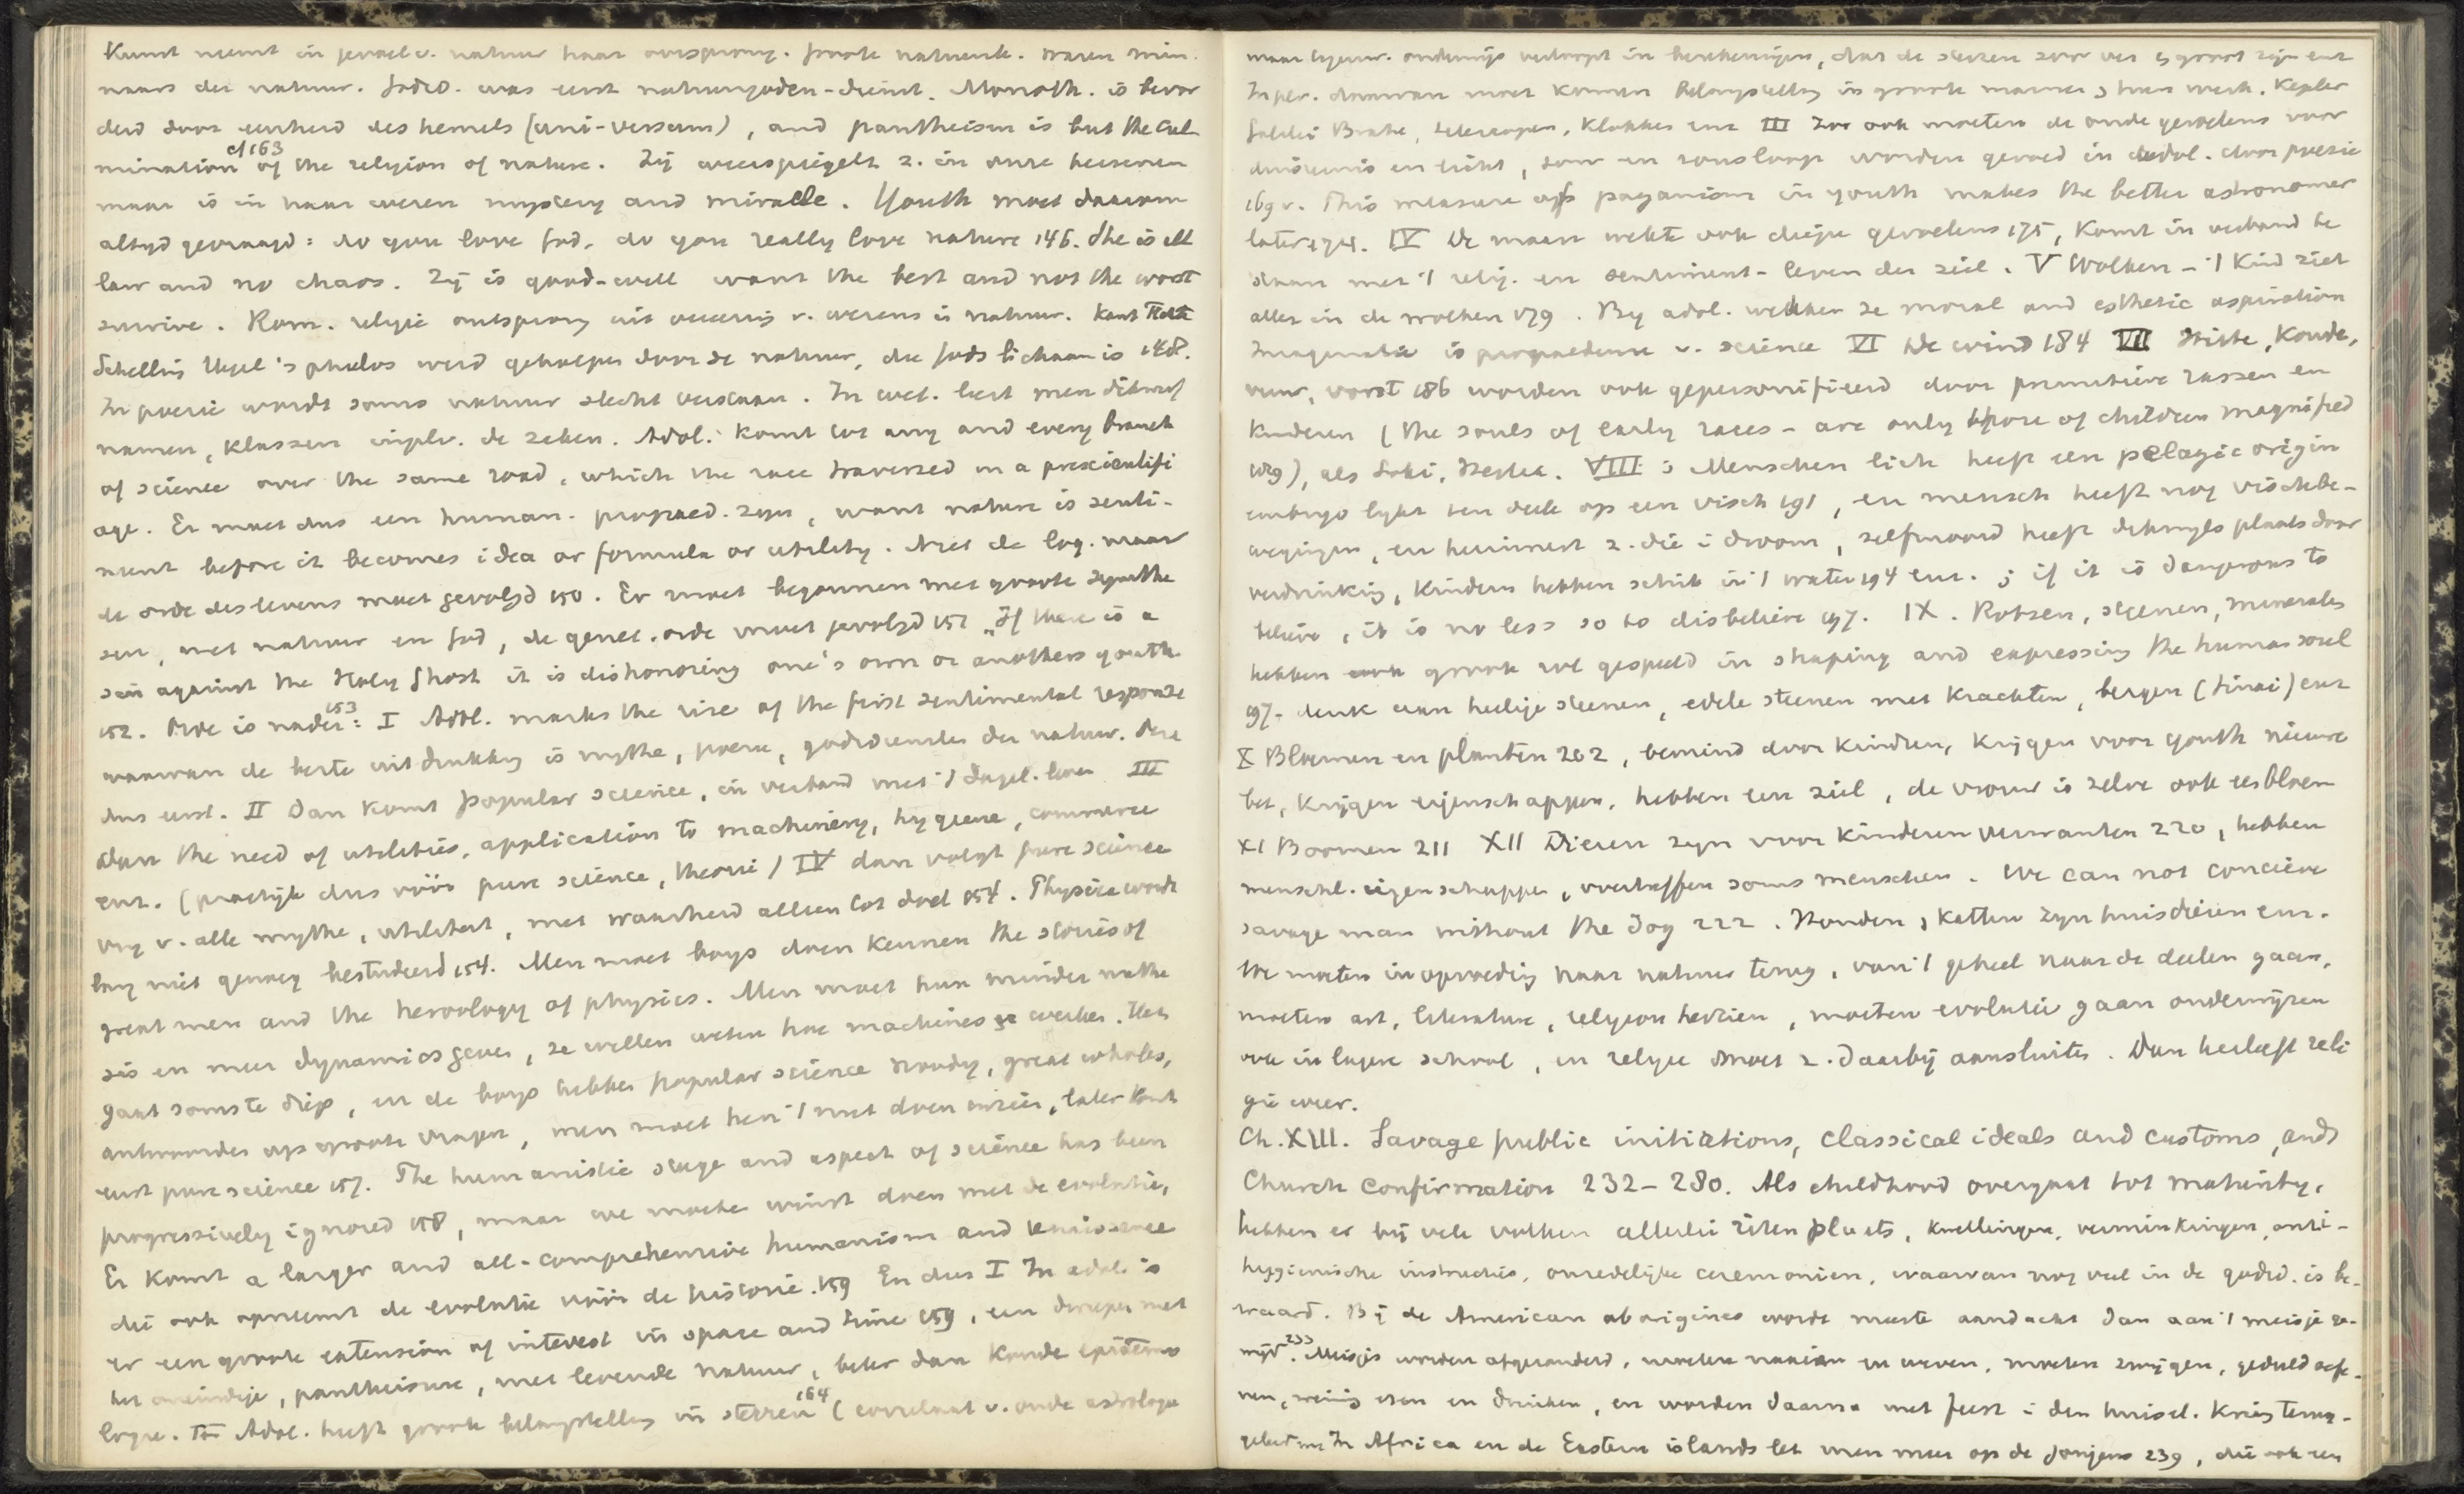 Kunst neemt in gevoel v. natuur haar oorsprong. Groote natuurk. waren min-
naars der natuur. Godsd. was eerst natuurgoden-dienst. Monoth. is bevor
derd door eenheid des hemels (uni-versum), and pantheism is but the cul
mination cf 163 of the religion of nature. Zij weerspiegelt z. in onze hersenen
maar is in haar wezen mystery and miracle. Youth moet daarom
altyd gevraagd: do you love God, do you really love nature 146. She is all
law and no chaos. Zij is good-will want the best and not the worst
survive. Rom. religie ontsprong uit v. wezens in natuur. Kant Fichte
Schelling Hegel's philos werd geholpen door de natuur, die Gods lichaam is 148.
In poezie wordt soms natuur slecht verstaan. In wet. leert men dikwijls
namen, klassen inpl. v. de zaken. Adol. komt tot any and every branch
of science over the same road, which the race traversed in a prescientifi
age. Er moet dus een human. propaed. zyn, want nature is senti-
ment before it becomes idea or formula or utility. Niet de log. maar
de orde des levens moet gevolgd 150. Er moet begonnen met groote synthe
sen, met natuur en God, de genet. orde moet gevolgd 151 „If there is a
sin against the Holy Ghost it is dishonoring one's own or anothers youth
152. Orde is nader 153: I Adol. marks the rise of the first sentimental response
waarvan de beste uitdrukking is mythe, poezie, godsdiensten der natuur. Deze
dus eerst. II Dan komt popular science, in verband met 't dagel. leven III
dan the need of utilities, application to machinery, hygiene, commerce
enz. (practijk dus vóór pure science, theorie) IV dan volgt pure science
vrij v. alle mythe, utiliteit, met waarheid alleen tot doel 154. Physica wordt
lang niet genoeg bestudeerd 154. Men moet boys doen kennen the stories of
great men and the heroology of physics. Men moet hun minder mathe
sis en meer dynamics geven, ze willen weten hoe machines werken. Het
gaat soms te diep, en de boys hebben popular science noodig, great wholes,
antwoorden op groote vragen, men moet hen 't nut doen inzien, later komt
eerst pure science 157. The humanistic stage and aspect of science has been
progressively ignored 158, maar we moeten winst doen met de evolutie,
Er komt a larger and all-comprehensive humanism and renaissance
die ook opneemt de evolutie vóór de historie. 159 En dus I In adol. is
er een groote extension of interest in space and time 159, een dwepen met
het oneindige, pantheisme, met levende natuur, beter dan koude epistemo
logie. Adol. heeft groote belangstelling in sterren 164 (correlaat v. oude astrologie
maar lager onderwijs verloopt in berekeningen, dat de sterren zoo ver en groot zijn enz
In pl. v. daarvan moet komen Belangstelling in groote mannen en hun werk. Kepler
Galilei Brahe, telescopen, klokken enz III Zoo ook moeten de oude gevoelens voor
duisternis en licht, zon en zonsloop worden gevoed in adol. door poezie
169 v. This measure of paganism in youth makes the better astronomer
later 174. IV De maan wekte ook diepe gevoelens 175, komt in verband te
staan met 't relig. en sentiment-leven der ziel. V Wolken - 't Kind ziet
alles in de wolken 179. By adol. wekken ze moral and esthetic aspiration
Imaginatie is propaedeuse v. science VI De wind 184 VII Hitte, Koude,
vuur, vorst 186 worden ook gepersonifieerd door primitieve rassen en
kinderen (the souls of early races - are only those of children magnified
189), als Loki, Hestia. VIII 's Menschen lich heeft een pelagic origin
embryo lijkt ten deele op een visch 191, en mensch heeft nog vischbe-
wegingen, en herinnert z. die in droom, zelfmoord heeft dikwijls plaats door
verdrinking, kinderen hebben schik in 't water 194 enz. ; if it is dangerous to
believe, it is no less so to disbelieve 197. IX. Rotsen, steenen, mineralen
hebben groote rol gespeeld in shaping and expressing the human soul
197 - denk aan heilige steenen, edele steenen met krachten, bergen (Sinai) enz
X Bloemen en planten 202, bemind door kindren, krijgen voor youth nieuwe
bet, krijgen eigenschappen, hebben een ziel, de vrouw is zelve ook een bloem
XI Boomen 211 XII Dieren zyn voor kinderen verwanten 220, hebben
menschl. eigenschappen, overtreffen soms menschen. We can not concieve
savage man without the dog 222. Honden en katten zyn huisdieren enz.
We moeten in opvoeding naar natuur terug, van 't geheel naar de deelen gaan,
moeten art, literature, religion herzien, moeten evolutie gaan onderwijzen
ook in lagere school, en religie moet z. daarbij aansluiten. Dan herleeft reli
gie weer.
Ch. XIII. Savage public initiations, classical ideals and customs, and
Church confirmation 232-280. Als childhood overgaat tot maturity,
hebben er bij vele volken allerlei riten plaats, kwellingen, verminkingen, anti-
hygienische instructies, onredelijke ceremonien, waarvan nog veel in de godsd. is be-
waard. Bij de American aborigines wordt meeste aandacht dan aan 't meisje ge-
wijd 233. Meisjes worden afgezonderd, moeten naaien en weven, moeten zwijgen, geduld oefe-
nen, weinig eten en drinken, en worden daarna met feest in den huisel. kring terug-
geleid. In Africa en de Eastern islands let men meer op de jongens 239, die ook een